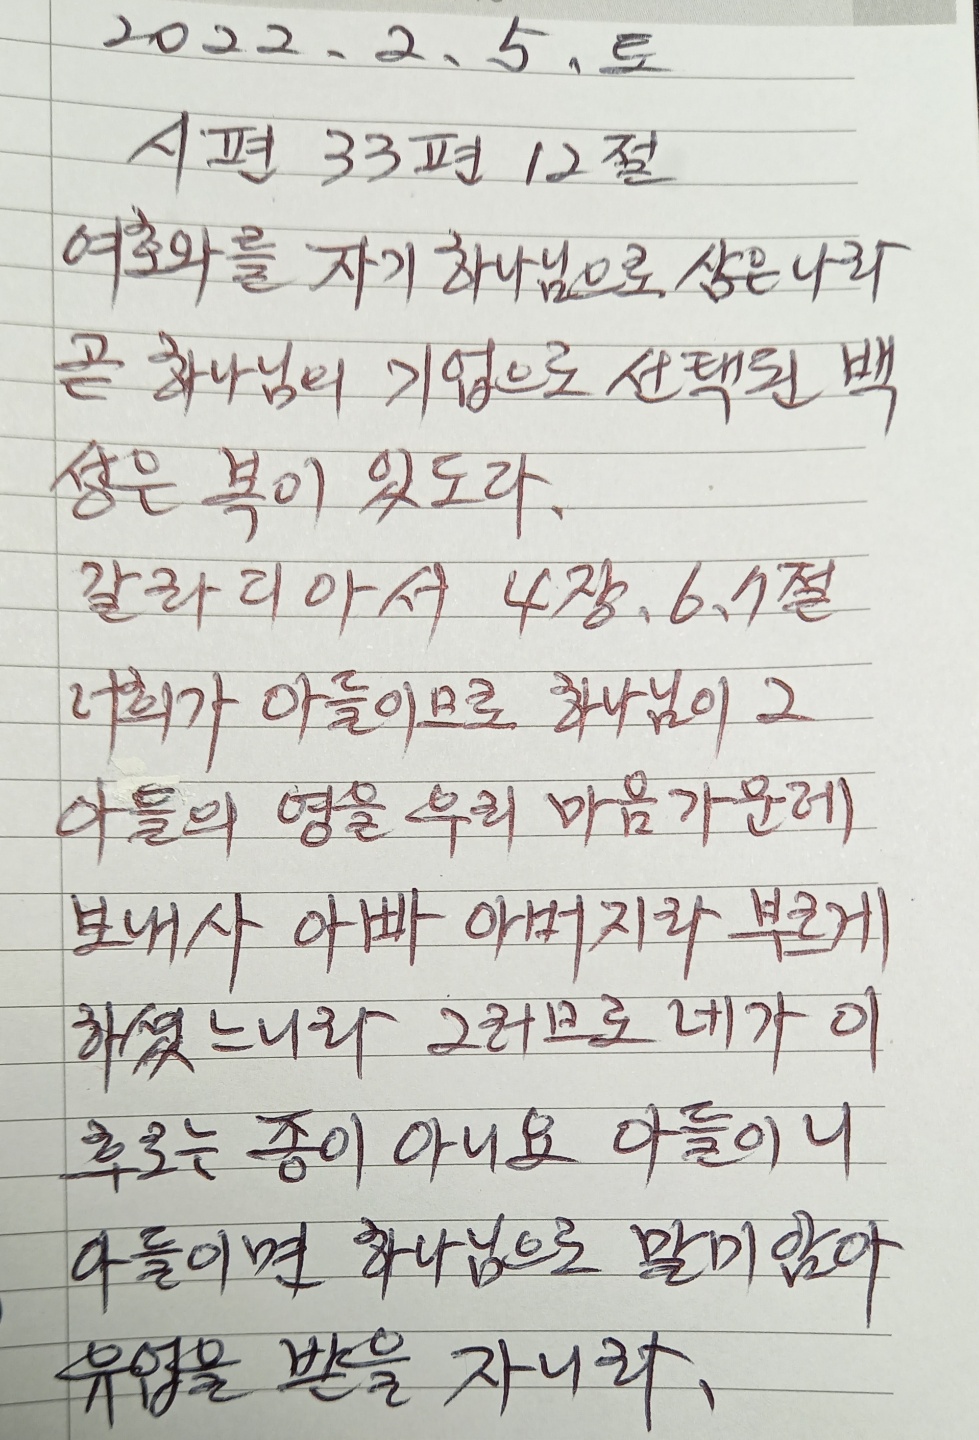 2022. 2. 5. 토
시편 33편 12절
여호와를 자기 하나님으로 삼은 나라
곧 하나님의 기업으로 선택된 백
성은 복이 있도다.
갈라디아서 4장. 6. 7절
너희가 아들이므로 하나님이 그
아들의 영을 우리 마음 가운데
보내사 아빠 아버지라 부르게
하셨느니라 그러므로 네가 이
후로는 종이 아니요 아들이니
아들이면 하나님으로 말미암아
유업을 받을 자니라.